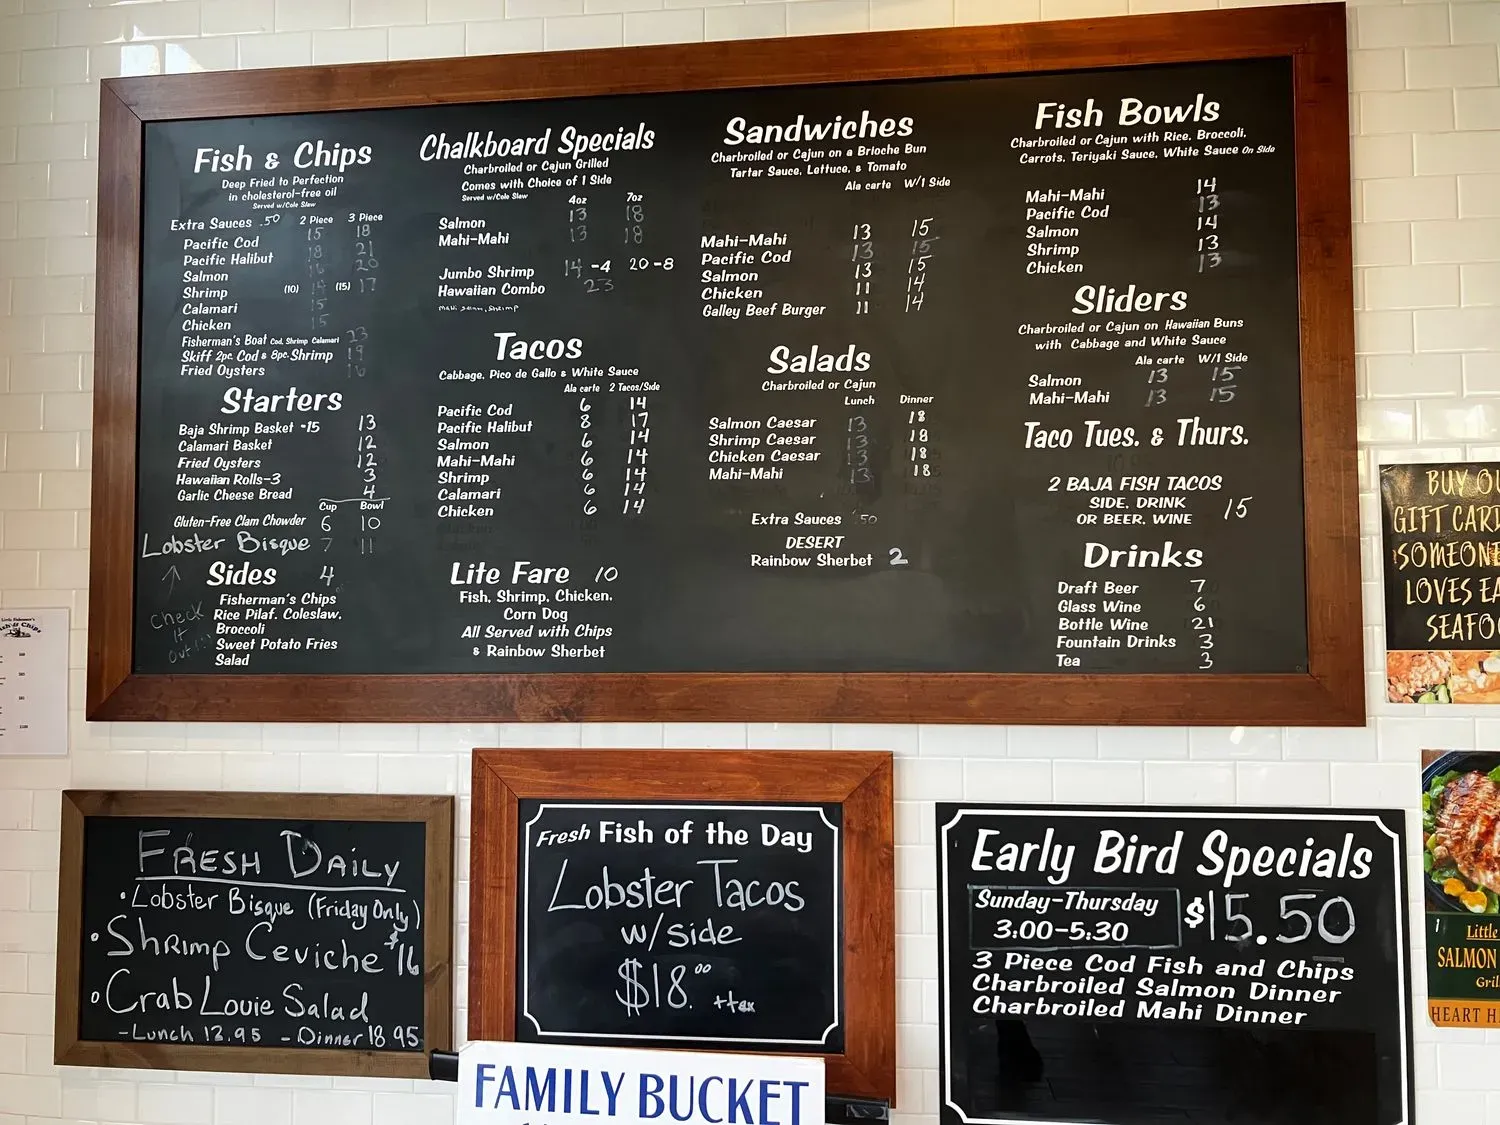 Fish & Chips
Deep Fried to Perfection
in cholesterol-free oil
Served w/Cole Slaw
Extra Sauces .50 2 Piece 3 Piece
Pacific Cod 15 18
Pacific Halibut 18 21
Salmon 16 20
Shrimp (10) 14 (15) 17
Calamari 15
Chicken 15
Fisherman's Boat Cod, Shrimp Calamari 23
Skiff 2pc. Cod & 8pc. Shrimp 19
Fried Oysters 16
Starters
Baja Shrimp Basket -15 13
Calamari Basket 12
Fried Oysters 12
Hawaiian Rolls-3 3
Garlic Cheese Bread 4
Cup Bowl
Gluten-Free Clam Chowder 6 10
Lobster Bisque 7 11
Check
it
out!!
Sides 4
Fisherman's Chips
Rice Pilaf, Coleslaw,
Broccoli
Sweet Potato Fries
Salad
Chalkboard Specials
Charbroiled or Cajun Grilled
Comes with Choice of 1 Side
Served w/Cole Slaw
4oz 7oz
Salmon 13 18
Mahi-Mahi 13 18
Jumbo Shrimp 14 -4 20 -8
Hawaiian Combo 23
Tacos
Cabbage, Pico de Gallo & White Sauce
Ala carte 2 Tacos/Side
Pacific Cod 6 14
Pacific Halibut 8 17
Salmon 6 14
Mahi-Mahi 6 14
Shrimp 6 14
Calamari 6 14
Chicken 6 14
Lite Fare 10
Fish, Shrimp, Chicken,
Corn Dog
All Served with Chips
& Rainbow Sherbet
Sandwiches
Charbroiled or Cajun on a Brioche Bun
Tartar Sauce, Lettuce, & Tomato
Ala carte W/1 Side
Mahi-Mahi 13 15
Pacific Cod 13 15
Salmon 13 15
Chicken 11 14
Galley Beef Burger 11 14
Salads
Charbroiled or Cajun
Lunch Dinner
Salmon Caesar 13 18
Shrimp Caesar 13 18
Chicken Caesar 13 18
Mahi-Mahi 13 18
Extra Sauces .50
DESERT
Rainbow Sherbet 2
Fish Bowls
Charbroiled or Cajun with Rice, Broccoli,
Carrots, Teriyaki Sauce, White Sauce On Side
Mahi-Mahi 14
Pacific Cod 13
Salmon 14
Shrimp 13
Chicken 13
Sliders
Charbroiled or Cajun on Hawaiian Buns
with Cabbage and White Sauce
Ala carte W/1 Side
Salmon 13 15
Mahi-Mahi 13 15
Taco Tues. & Thurs.
2 BAJA FISH TACOS
SIDE, DRINK
OR BEER, WINE 15
Drinks
Draft Beer 7
Glass Wine 6
Bottle Wine 21
Fountain Drinks 3
Tea 3
BUY
GIFT CAR
SOMEON
LOVES EA
SEAFO
FRESH DAILY
• Lobster Bisque (Friday Only)
• Shrimp Ceviche $16
• Crab Louie Salad
-Lunch 12.95 - Dinner 18.95
Fresh Fish of the Day
Lobster Tacos
w/side
$18.00 +tax
FAMILY BUCKET
Early Bird Specials
Sunday-Thursday
3:00-5:30 $15.50
3 Piece Cod Fish and Chips
Charbroiled Salmon Dinner
Charbroiled Mahi Dinner
Little
SALMON
Gril
HEART H